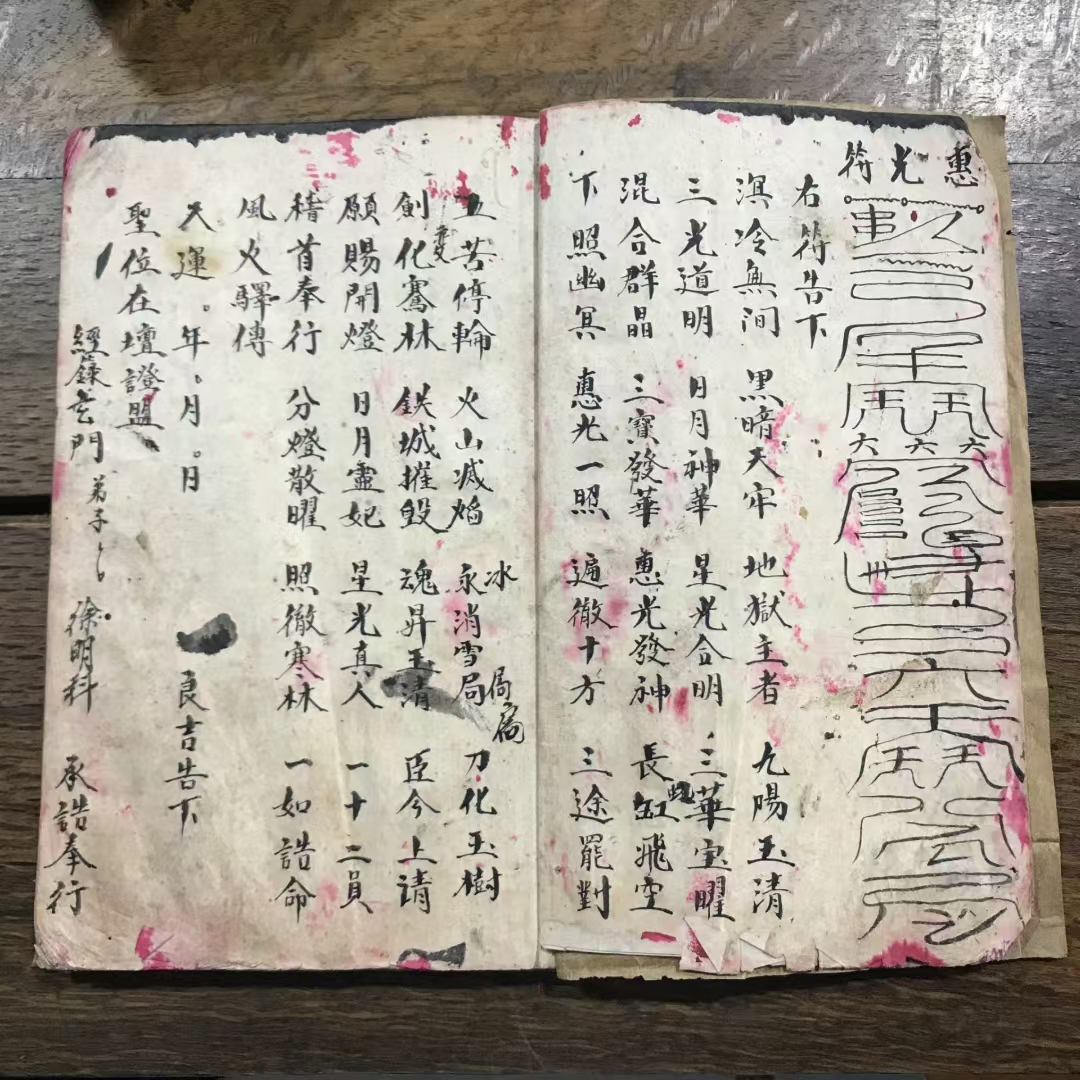 惠光符
右符告下
溟冷無间 黑暗天牢 地獄主者 九陽玉清
三光道明 日月神華 星光合明 三華宝曜
混合群晶 三寳發華 惠光發神 長缸飛空
下照幽冥 惠光一照 遍徹十方 三途罷對
五苦停輪 火山滅焰 永消雪局 刀化玉樹
冰
局
剑化騫林 鉄城摧毀 魂昇玉清 臣今上请
願賜開燈 日月靈妃 星光真人 一十二員
稽首奉行 分燈散曜 照徹寒林 一如誥命
風火驛傳
天運。年。月。日 良吉告下
聖位在壇證盟
經籙玄門 弟子 徐明科 承誥奉行